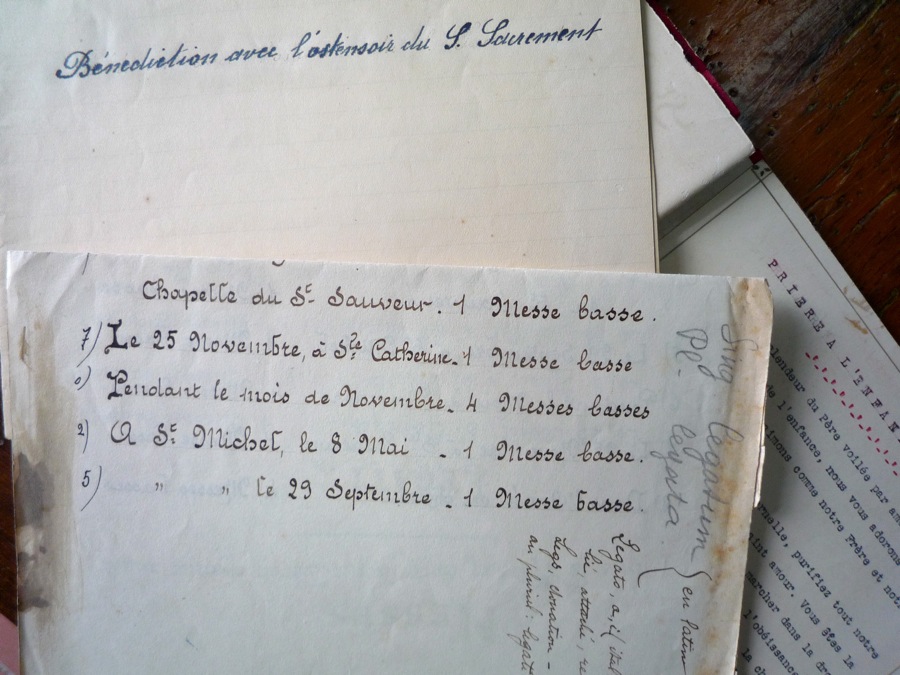 Bénédiction avec l'ostensoir du S. Sacrement
Chapelle du St- Sauveur. 1 Messe basse.
7) Le 25 Novembre, à Ste Catherine. 1 Messe basse
6) Pendant le mois de Novembre. 4 Messes basses
2) A St Michel, le 8 Mai - 1 Messe basse.
5) " " le 29 Septembre - 1 Messe basse.
Sing legatum
Pl- legata
en latin
Legato, a, d'ital
lié, attaché,
Legs, donation -
au pluriel: legati
PRIERE A L'ENFAN
splendeur du Père voilée par
de l'enfance, nous vous adorons
comme notre Frère et
purifiez tout notre
amour. Vous êtes la
marcher dans la
l'obéissance